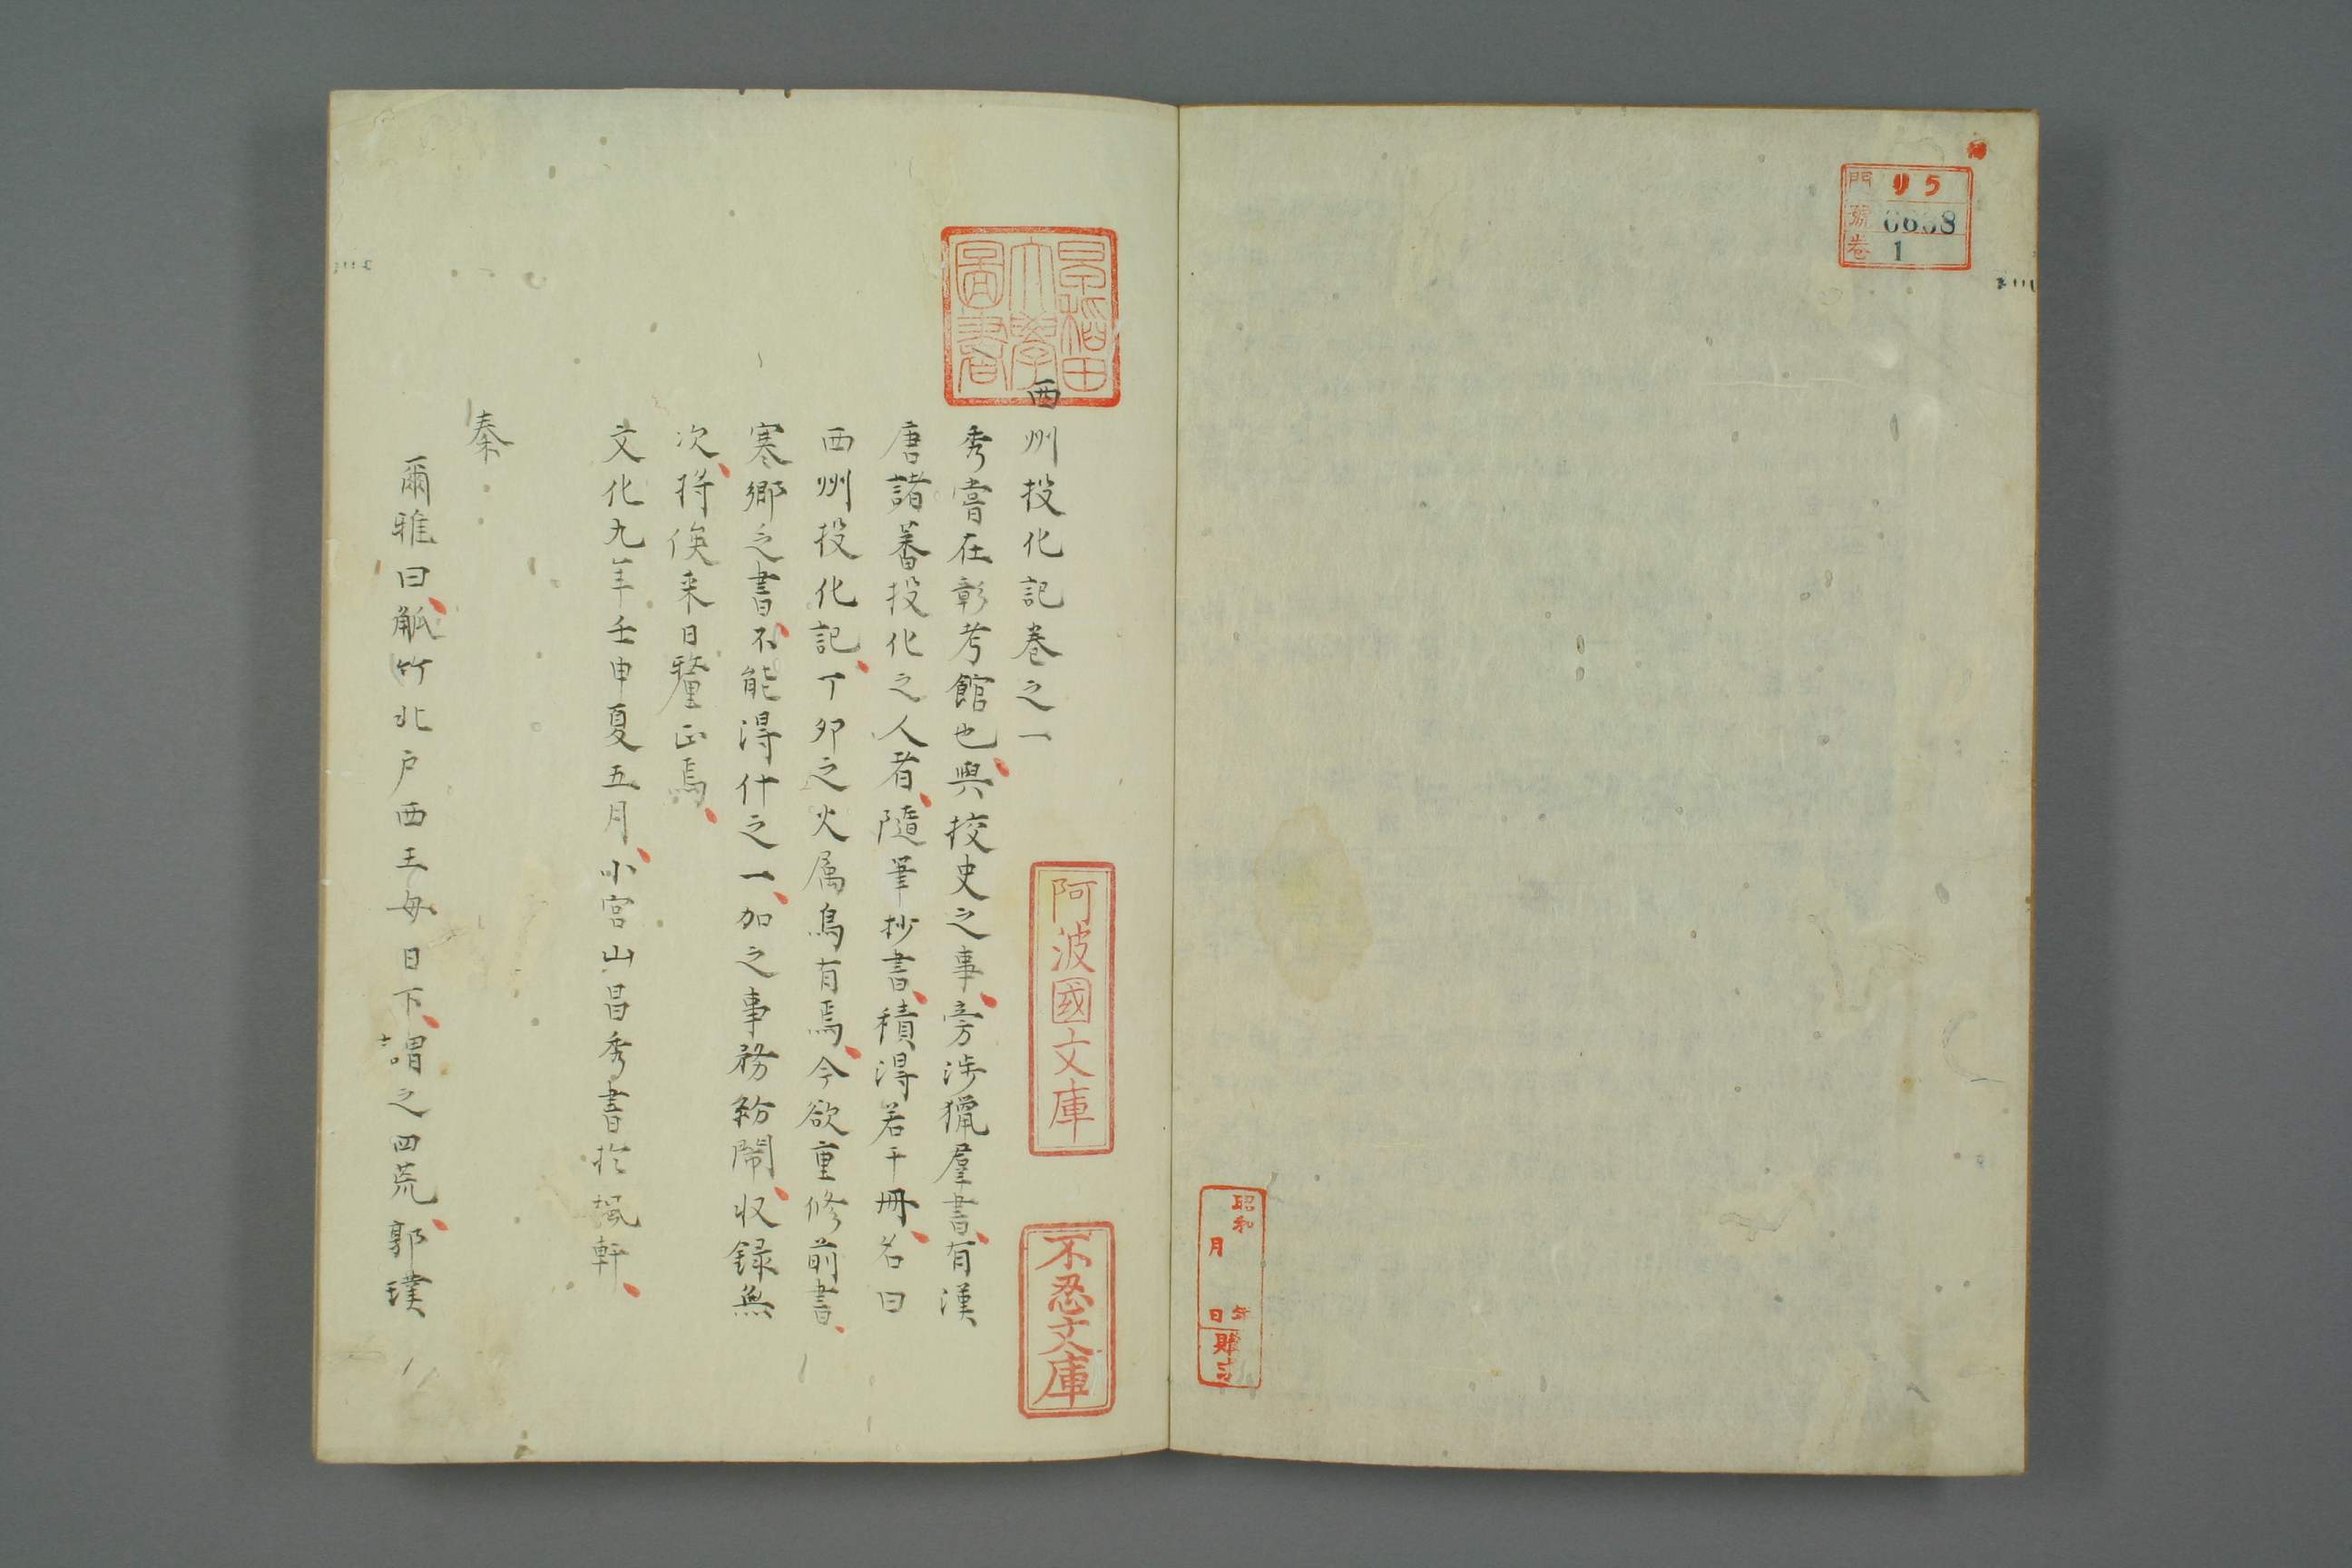 門 リ5
號 0638
卷 1
昭和 年
月 日
購求
早稲田
大學
圖書
阿波國文庫
不忍文庫
西州投化記巻之一
秀嘗在彰考館也、與挍史之事、旁渉獵羣書、有漢
唐諸蕃投化之人者、隨筆抄書、積得若干冊、名曰
西州投化記、丁夘之火属烏有焉、今欲重修前書、
寒郷之書、不能得什之一、加之事務紛鬧、収録無
次、将俟来日釐正焉、
文化九年壬申夏五月、小宮山昌秀書於楓軒、
秦
爾雅曰、觚竹北戸西王毋日下、謂之四荒、郭璞